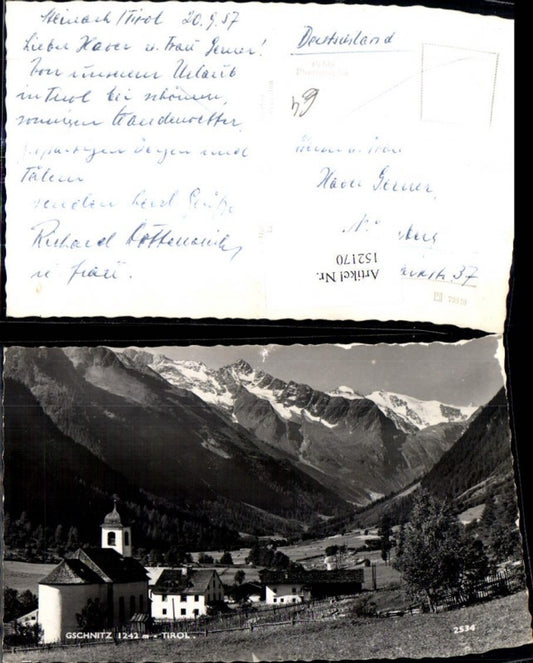 Steinach / Tirol 20.9.57
Lieber Xaver u. Frau Gerner!
Von unserem Urlaub
in Tirol bei schönem,
sonnigen Wanderwetter,
Bergen und
Tälern
senden herzl. Grüße
Richard
u. Frau.
Deutschland
64
Herrn u. Frau
Xaver Gerner,
37
Artikel Nr.
152170
GSCHNITZ 1242 m • TIROL.
2534